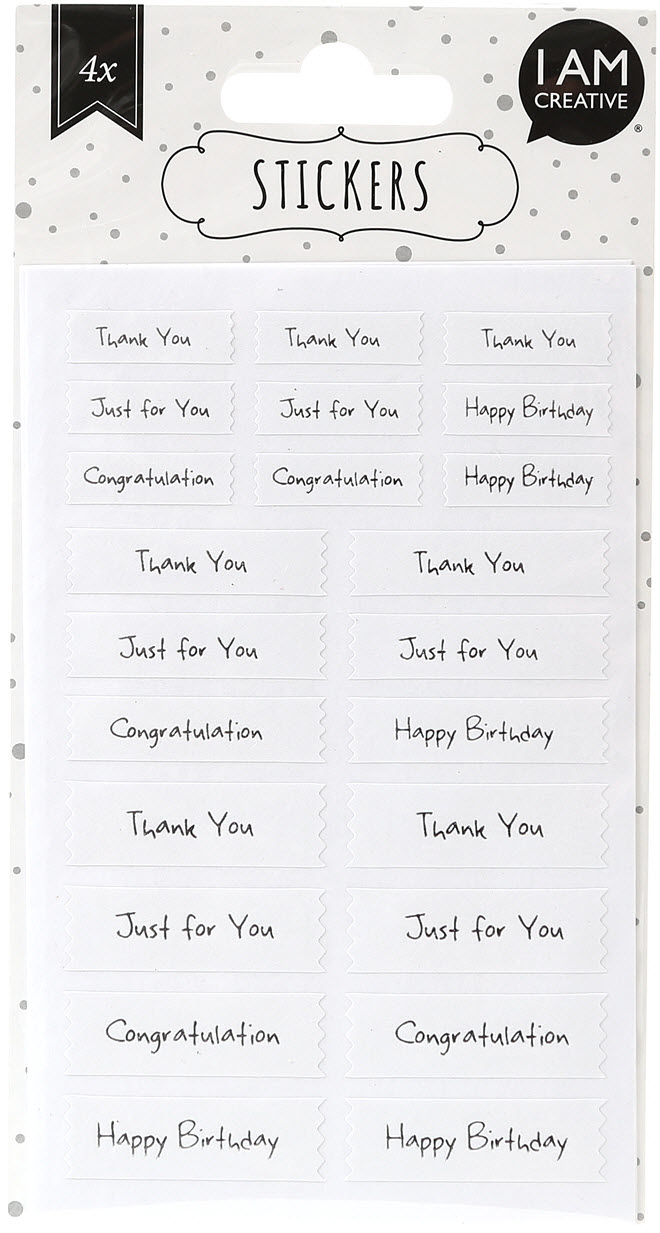 4x
I AM
CREATIVE
®
STICKERS
Thank You Thank You Thank You
Just for You Just for You Happy Birthday
Congratulation Congratulation Happy Birthday
Thank You Thank You
Just for You Just for You
Congratulation Happy Birthday
Thank You Thank You
Just for You Just for You
Congratulation Congratulation
Happy Birthday Happy Birthday